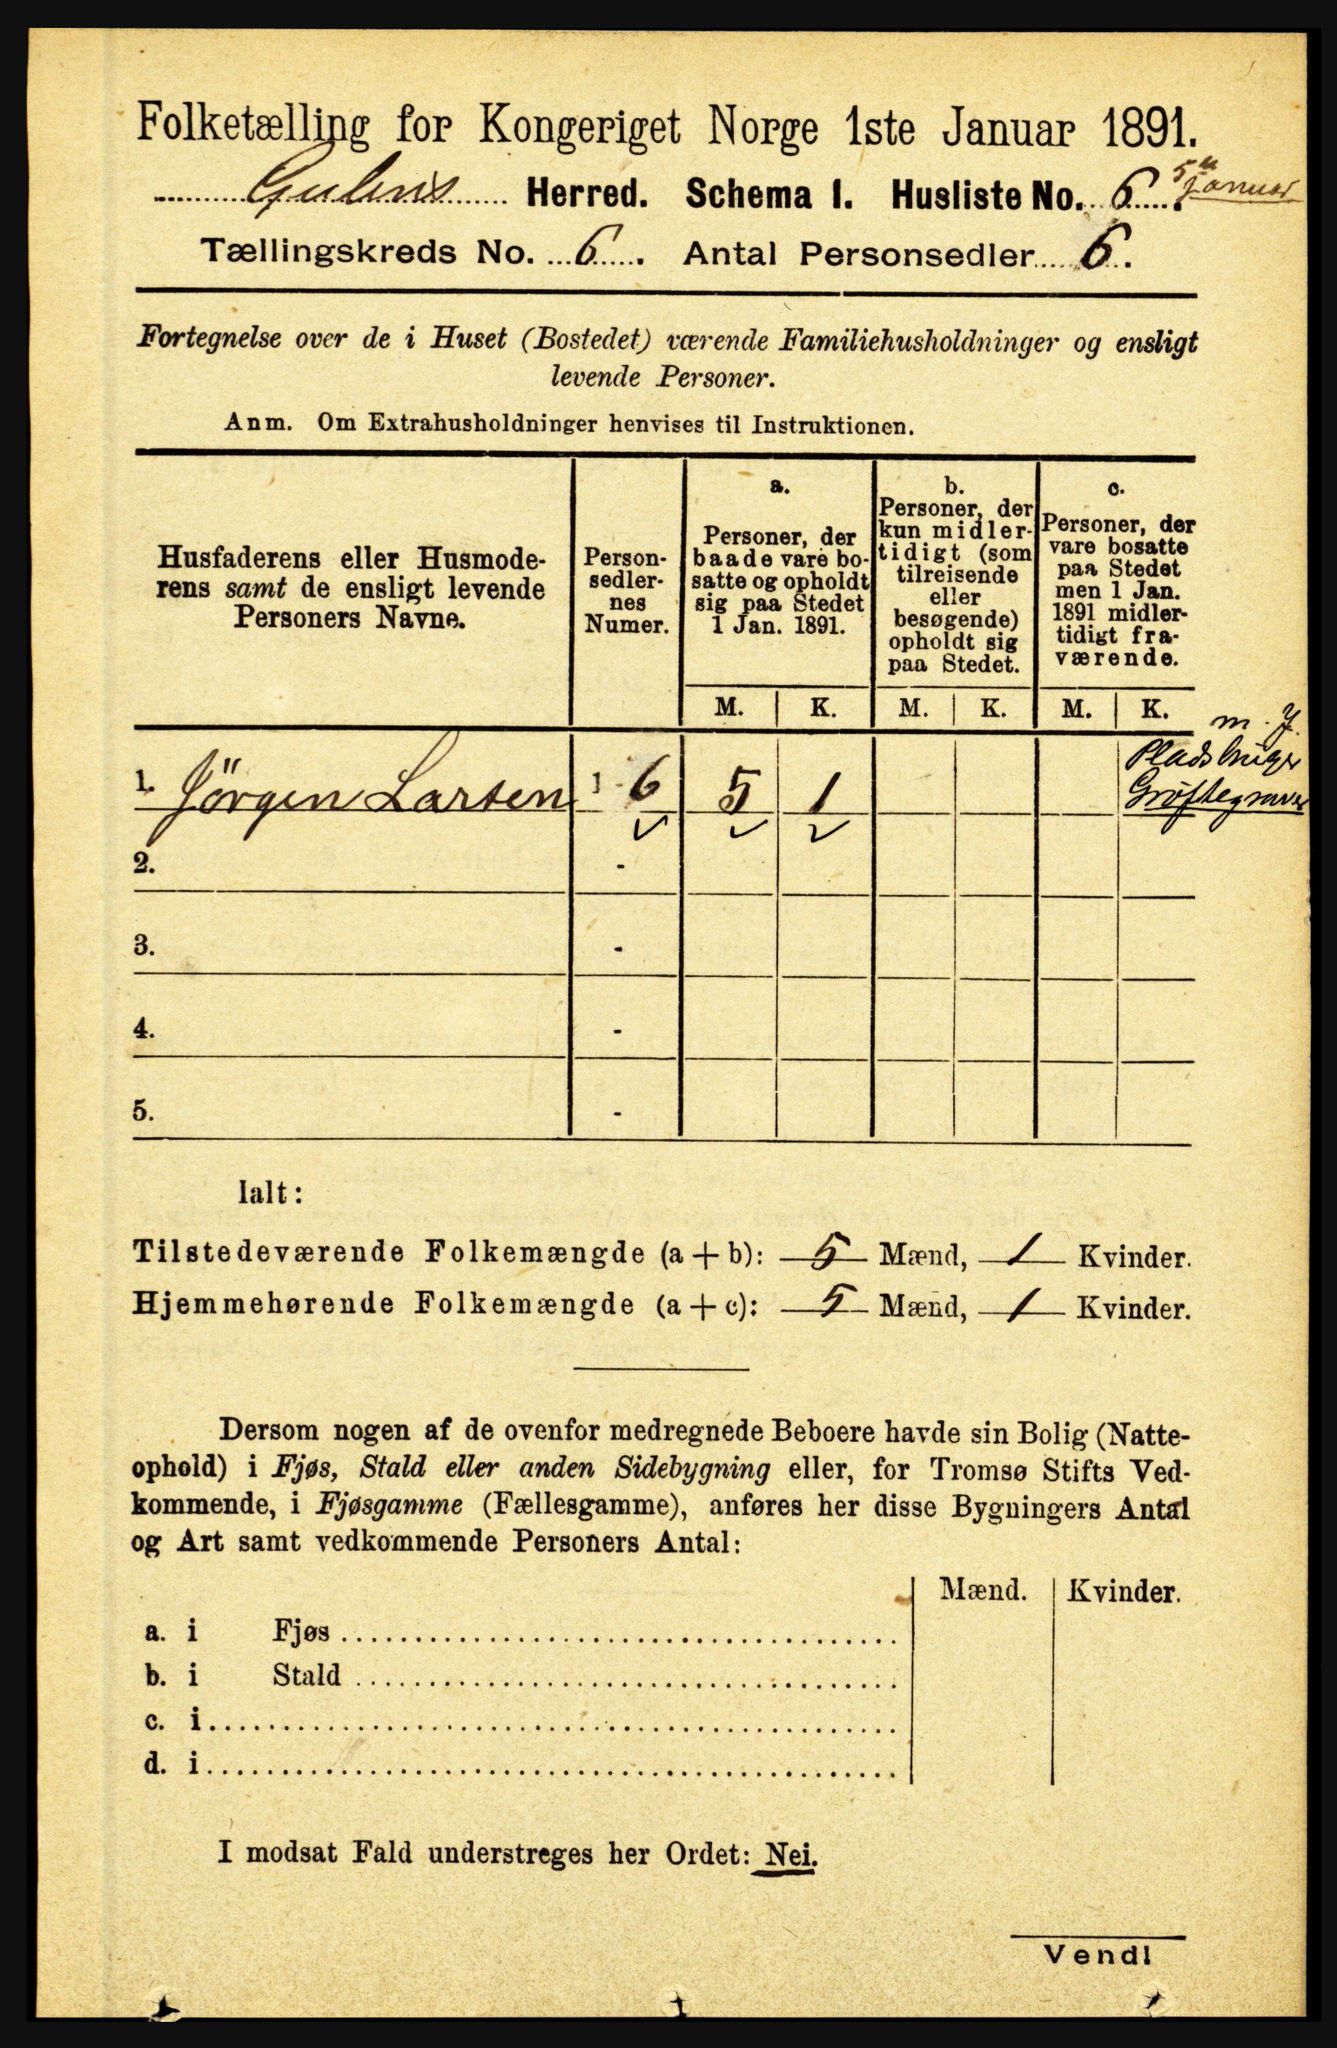 Folketælling for Kongeriget Norge 1ste Januar 1891.
Gulens Herred. Schema I. Husliste No. 6. 5te Januar
Tællingskreds No. 6. Antal Personsedler 6.
Fortegnelse over de i Huset (Bostedet) værende Familiehusholdninger og ensligt
levende Personer.
Anm. Om Extrahusholdninger henvises til Instruktionen.
Husfaderens eller Husmode-
rens samt de ensligt levende
Personers Navne.
Person-
sedler-
nes
Numer.
a.
Personer, der
baade vare bo-
satte og opholdt
sig paa Stedet
1 Jan. 1891.
b.
Personer, der
kun midler-
tidigt (som
tilreisende
eller
besøgende)
opholdt sig
paa Stedet.
c.
Personer, der
vare bosatte
paa Stedet
men 1 Jan.
1891 midler-
tidigt fra-
værende.
M. K. M. K. M. K.
m. J.
Pladsbruger
Grøftegraver
1. Jörgen Larsen 1 - 6 5 1
2. -
3. -
4. -
5. -
Ialt:
Tilstedeværende Folkemængde (a + b): 5 Mænd, 1 Kvinder.
Hjemmehørende Folkemængde (a + c): 5 Mænd, 1 Kvinder.
Dersom nogen af de ovenfor medregnede Beboere havde sin Bolig (Natte-
ophold) i Fjøs, Stald eller anden Sidebygning eller, for Tromsø Stifts Ved-
kommende, i Fjøsgamme (Fællesgamme), anføres her disse Bygningers Antal
og Art samt vedkommende Personers Antal:
Mænd. Kvinder.
a. i Fjøs
b. i Stald
c. i
d. i
I modsat Fald understreges her Ordet: Nei.
Vend!